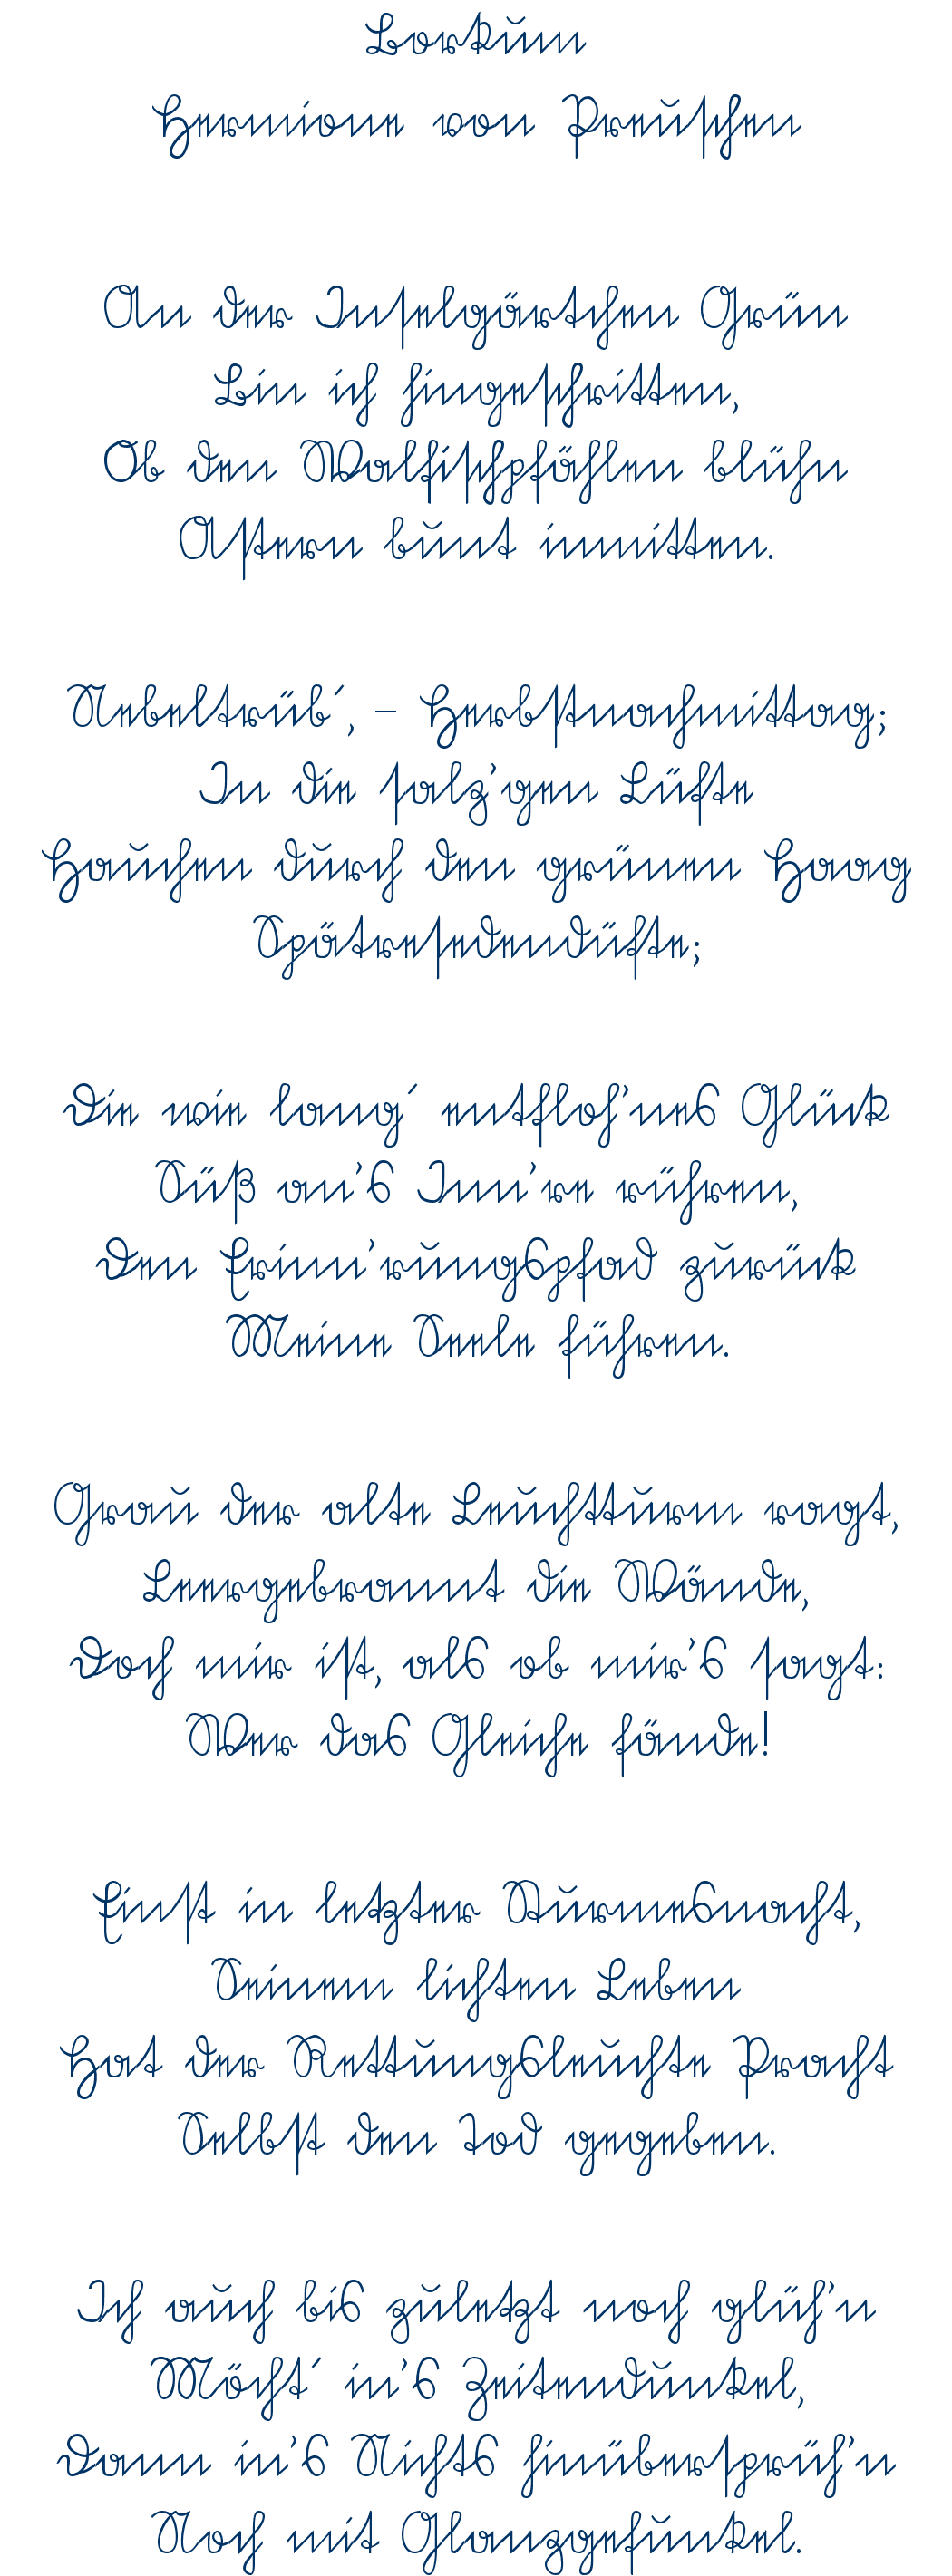 Borkum
Hermione von Preuschen
An der Inselgärtchen Grün
Bin ich hingeschritten,
Ob den Walfischpfählen blühn
Astern bunt inmitten.
Nebeltrüb´, – Herbstnachmittag;
In die salz’gen Lüfte
Hauchen durch den grünen Haag
Spätresedendüfte;
Die wie lang´ entfloh’nes Glück
Süß an’s Inn’re rühren,
Den Erinn’rungspfad zurück
Meine Seele führen.
Grau der alte Leuchtturm ragt,
Leergebrannt die Wände,
Doch mir ist, als ob mir’s sagt:
Wer das Gleiche fände!
Einst in letzter Sturmesnacht,
Seinem lichten Leben
Hat der Rettungsleuchte Pracht
Selbst den Tod gegeben.
Ich auch bis zuletzt noch glüh’n
Möcht´ in’s Zeitendunkel,
Dann in’s Nichts hinübersprüh’n
Noch mit Glanzgefunkel.